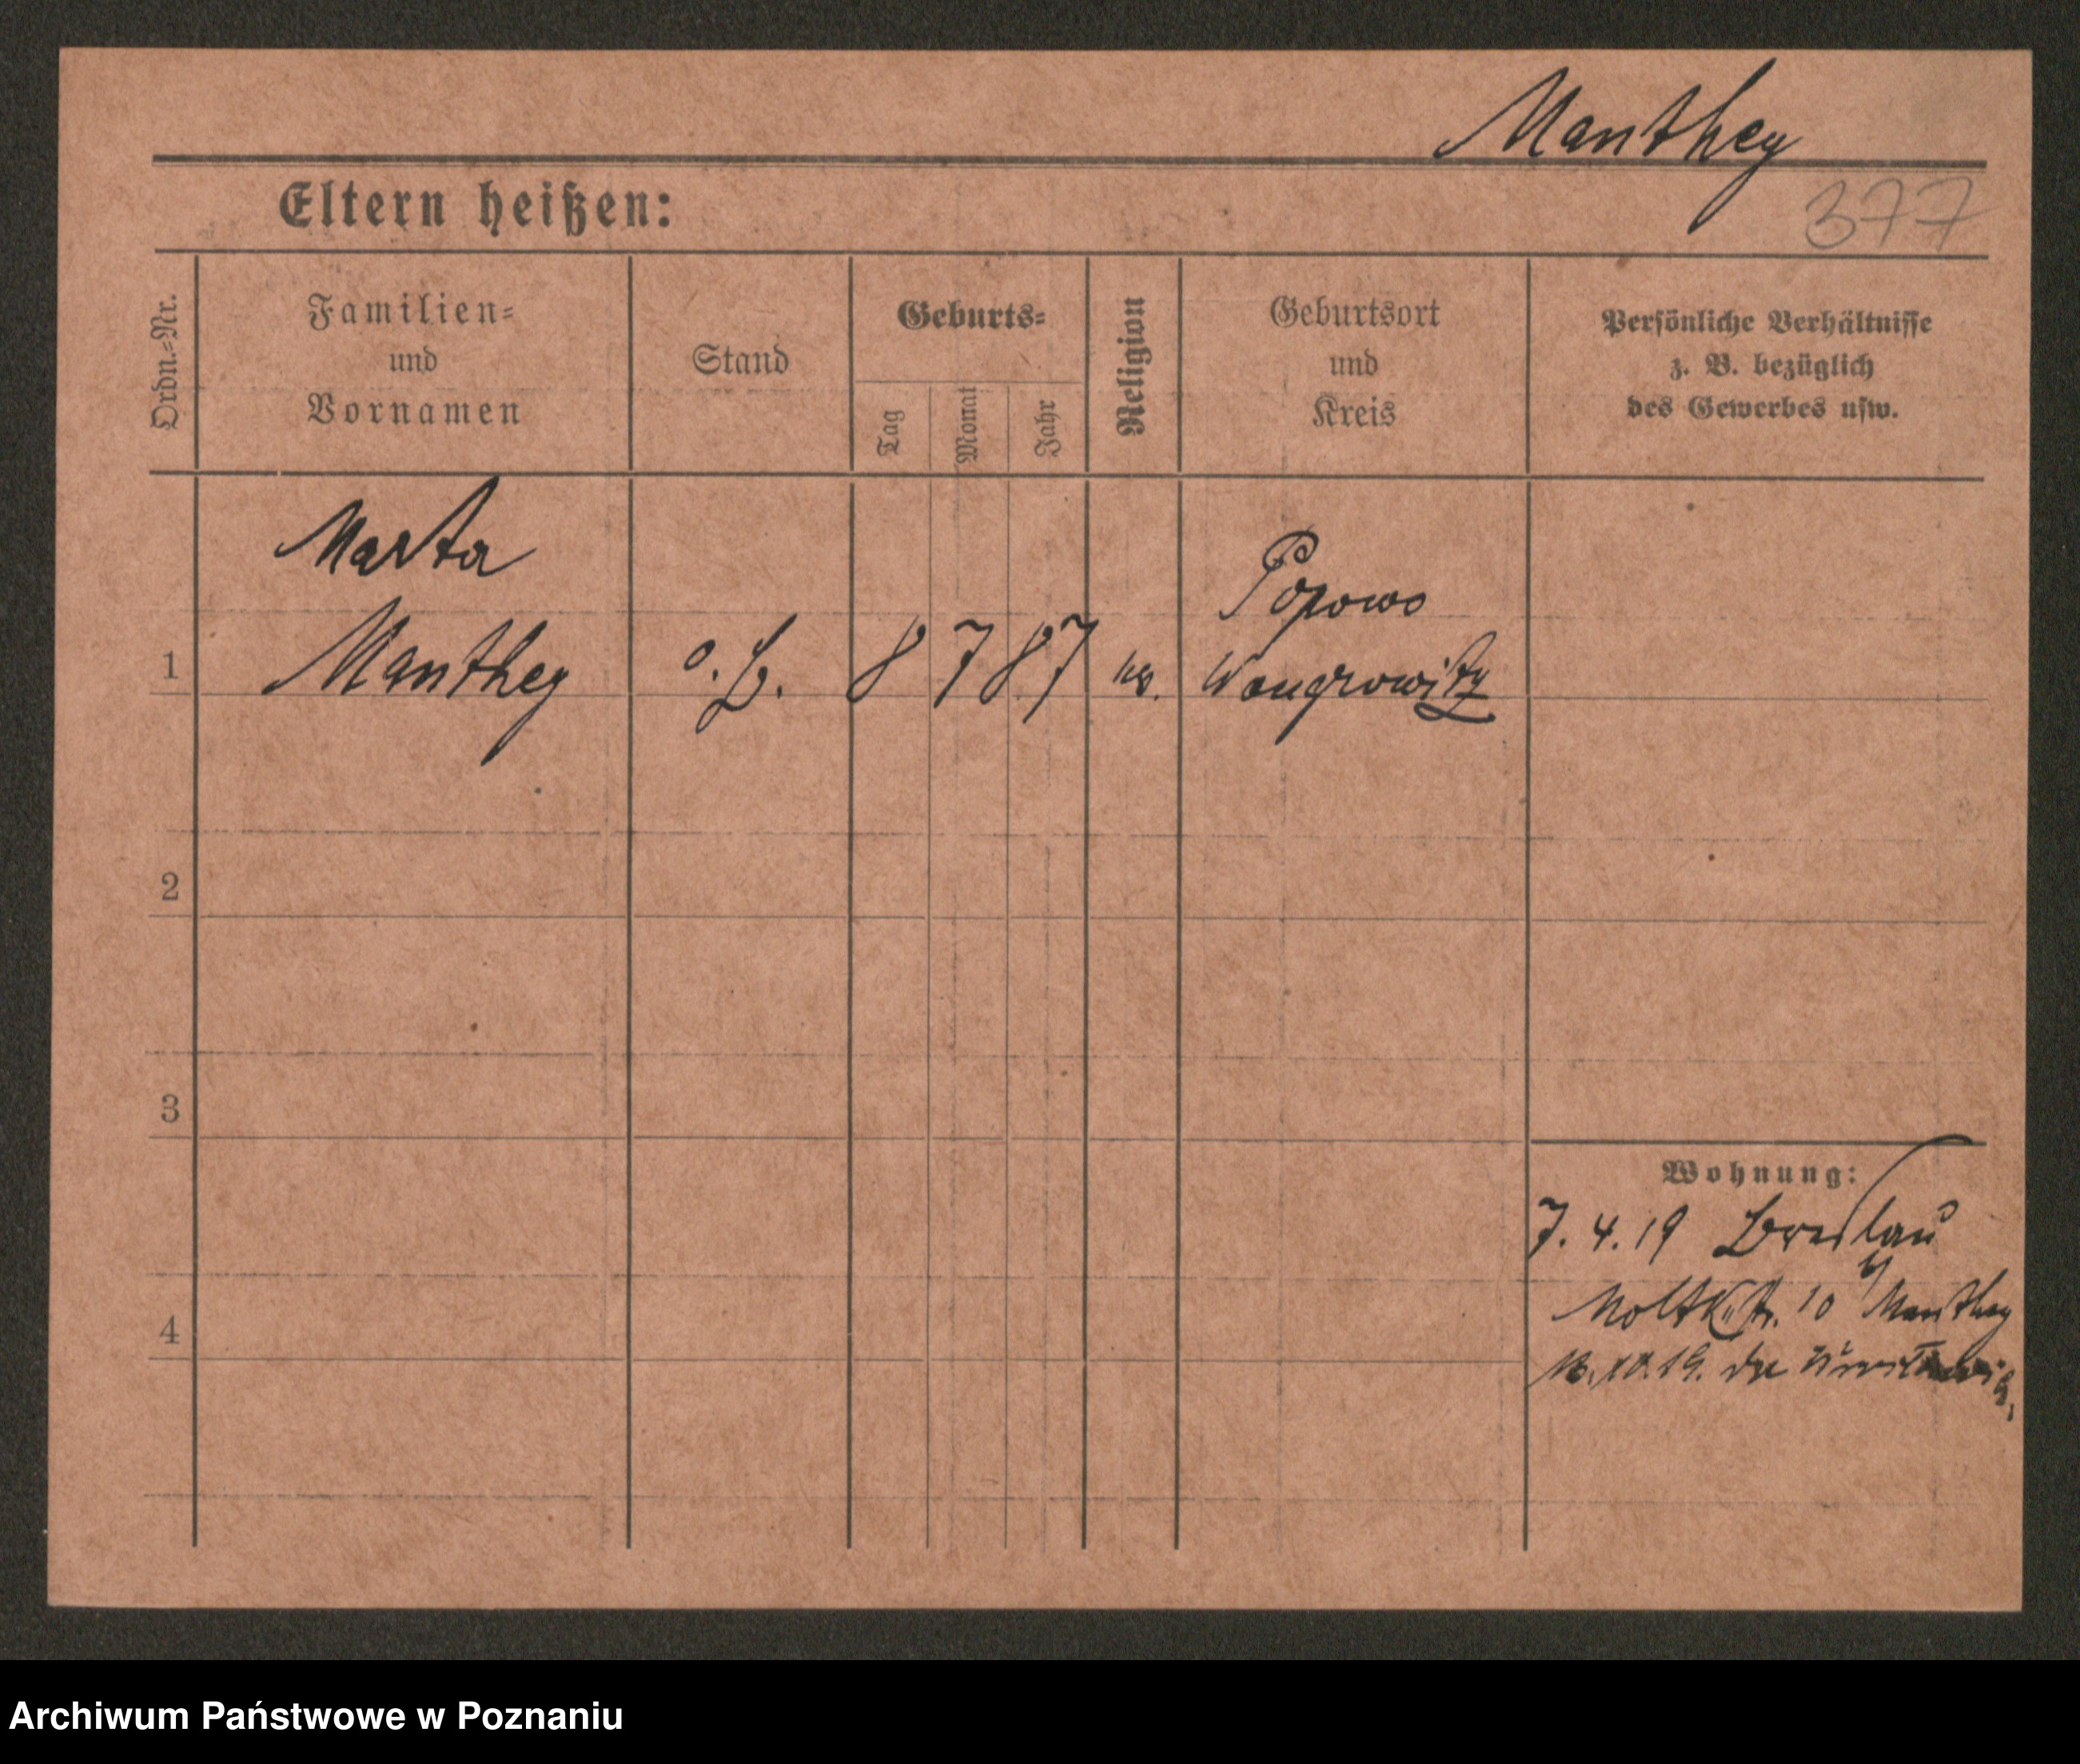 Manthey
Eltern heißen:
377
Ordn.-Nr.
Familien-
und
Vornamen
Stand
Geburts-
Tag
Monat
Jahr
Religion
Geburtsort
und
Kreis
Persönliche Verhältnisse
z. B. bezüglich
des Gewerbes usw.
Marta
Popowo
1 Manthey o. B. 8 7 87 Wongrowitz
2
3
4
Wohnung:
7. 4. 19 Breslau
Moltkestr. 10 b/ Manthey
Archiwum Państwowe w Poznaniu